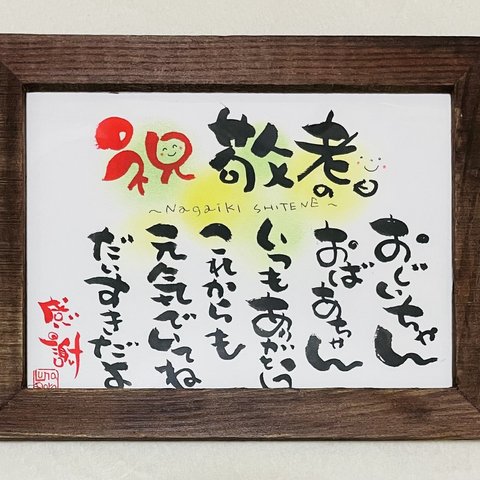 祝敬老の日
~NagaiKi SHITENE~
おじいちゃん
おばあちゃん
いつもありがとう
これからも
元気でいてね
だいすきだよ
感謝